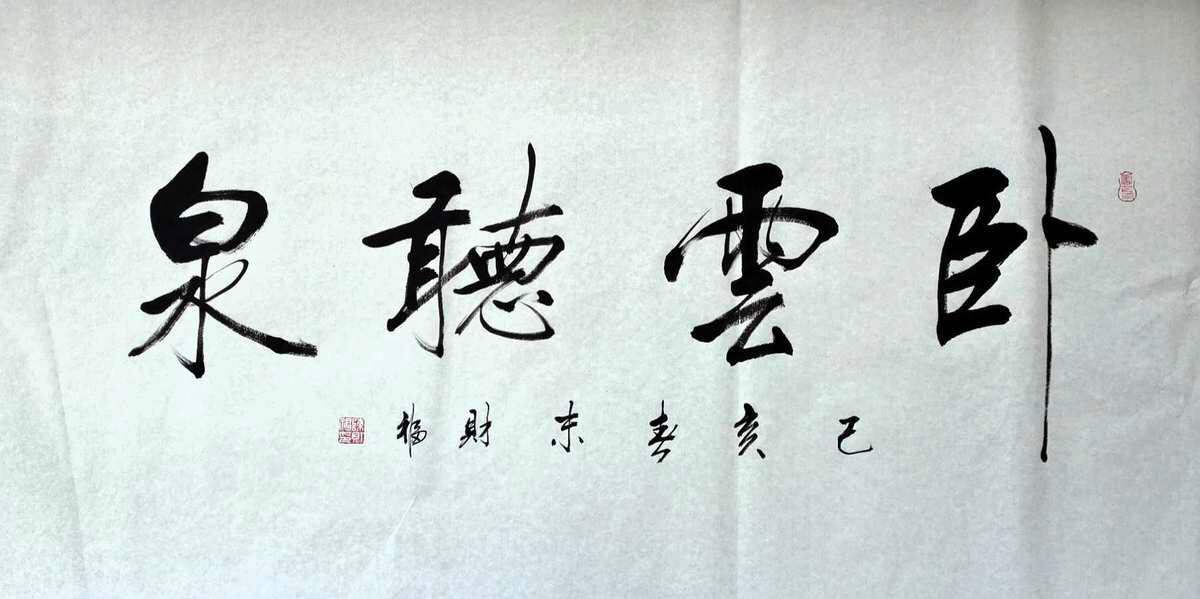 卧雲聽泉
己亥春末財福